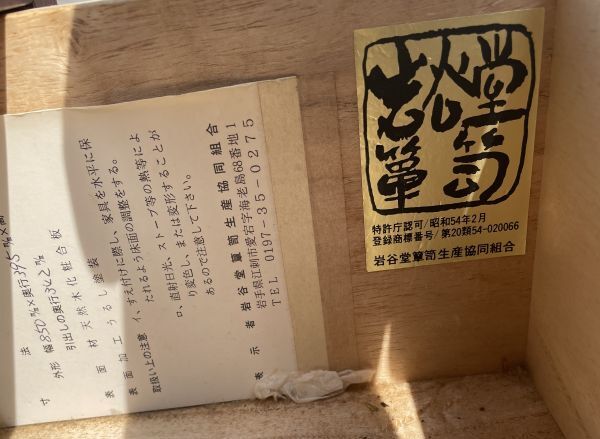 岩谷堂箪笥
特許庁認可/昭和54年2月
登録商標番号/第20類54-020066
岩谷堂簞笥生産協同組合
寸法
外形 幅850㎜×奥行395㎜×高
引出しの奥行342㎜
表面材 天然木化粧合板
表面加工 うるし塗装
取扱い上の注意 イ、すえ付けに際し、家具を水平に保
たれるよう床面の調整をする。
ロ、直射日光、ストーブ等の熱等によ
り変色し、または変形することが
あるので注意して下さい。
表示者 岩谷堂簞笥生産協同組合
岩手県江刺市愛宕字海老島68番地1
TEL 0197-35-0275